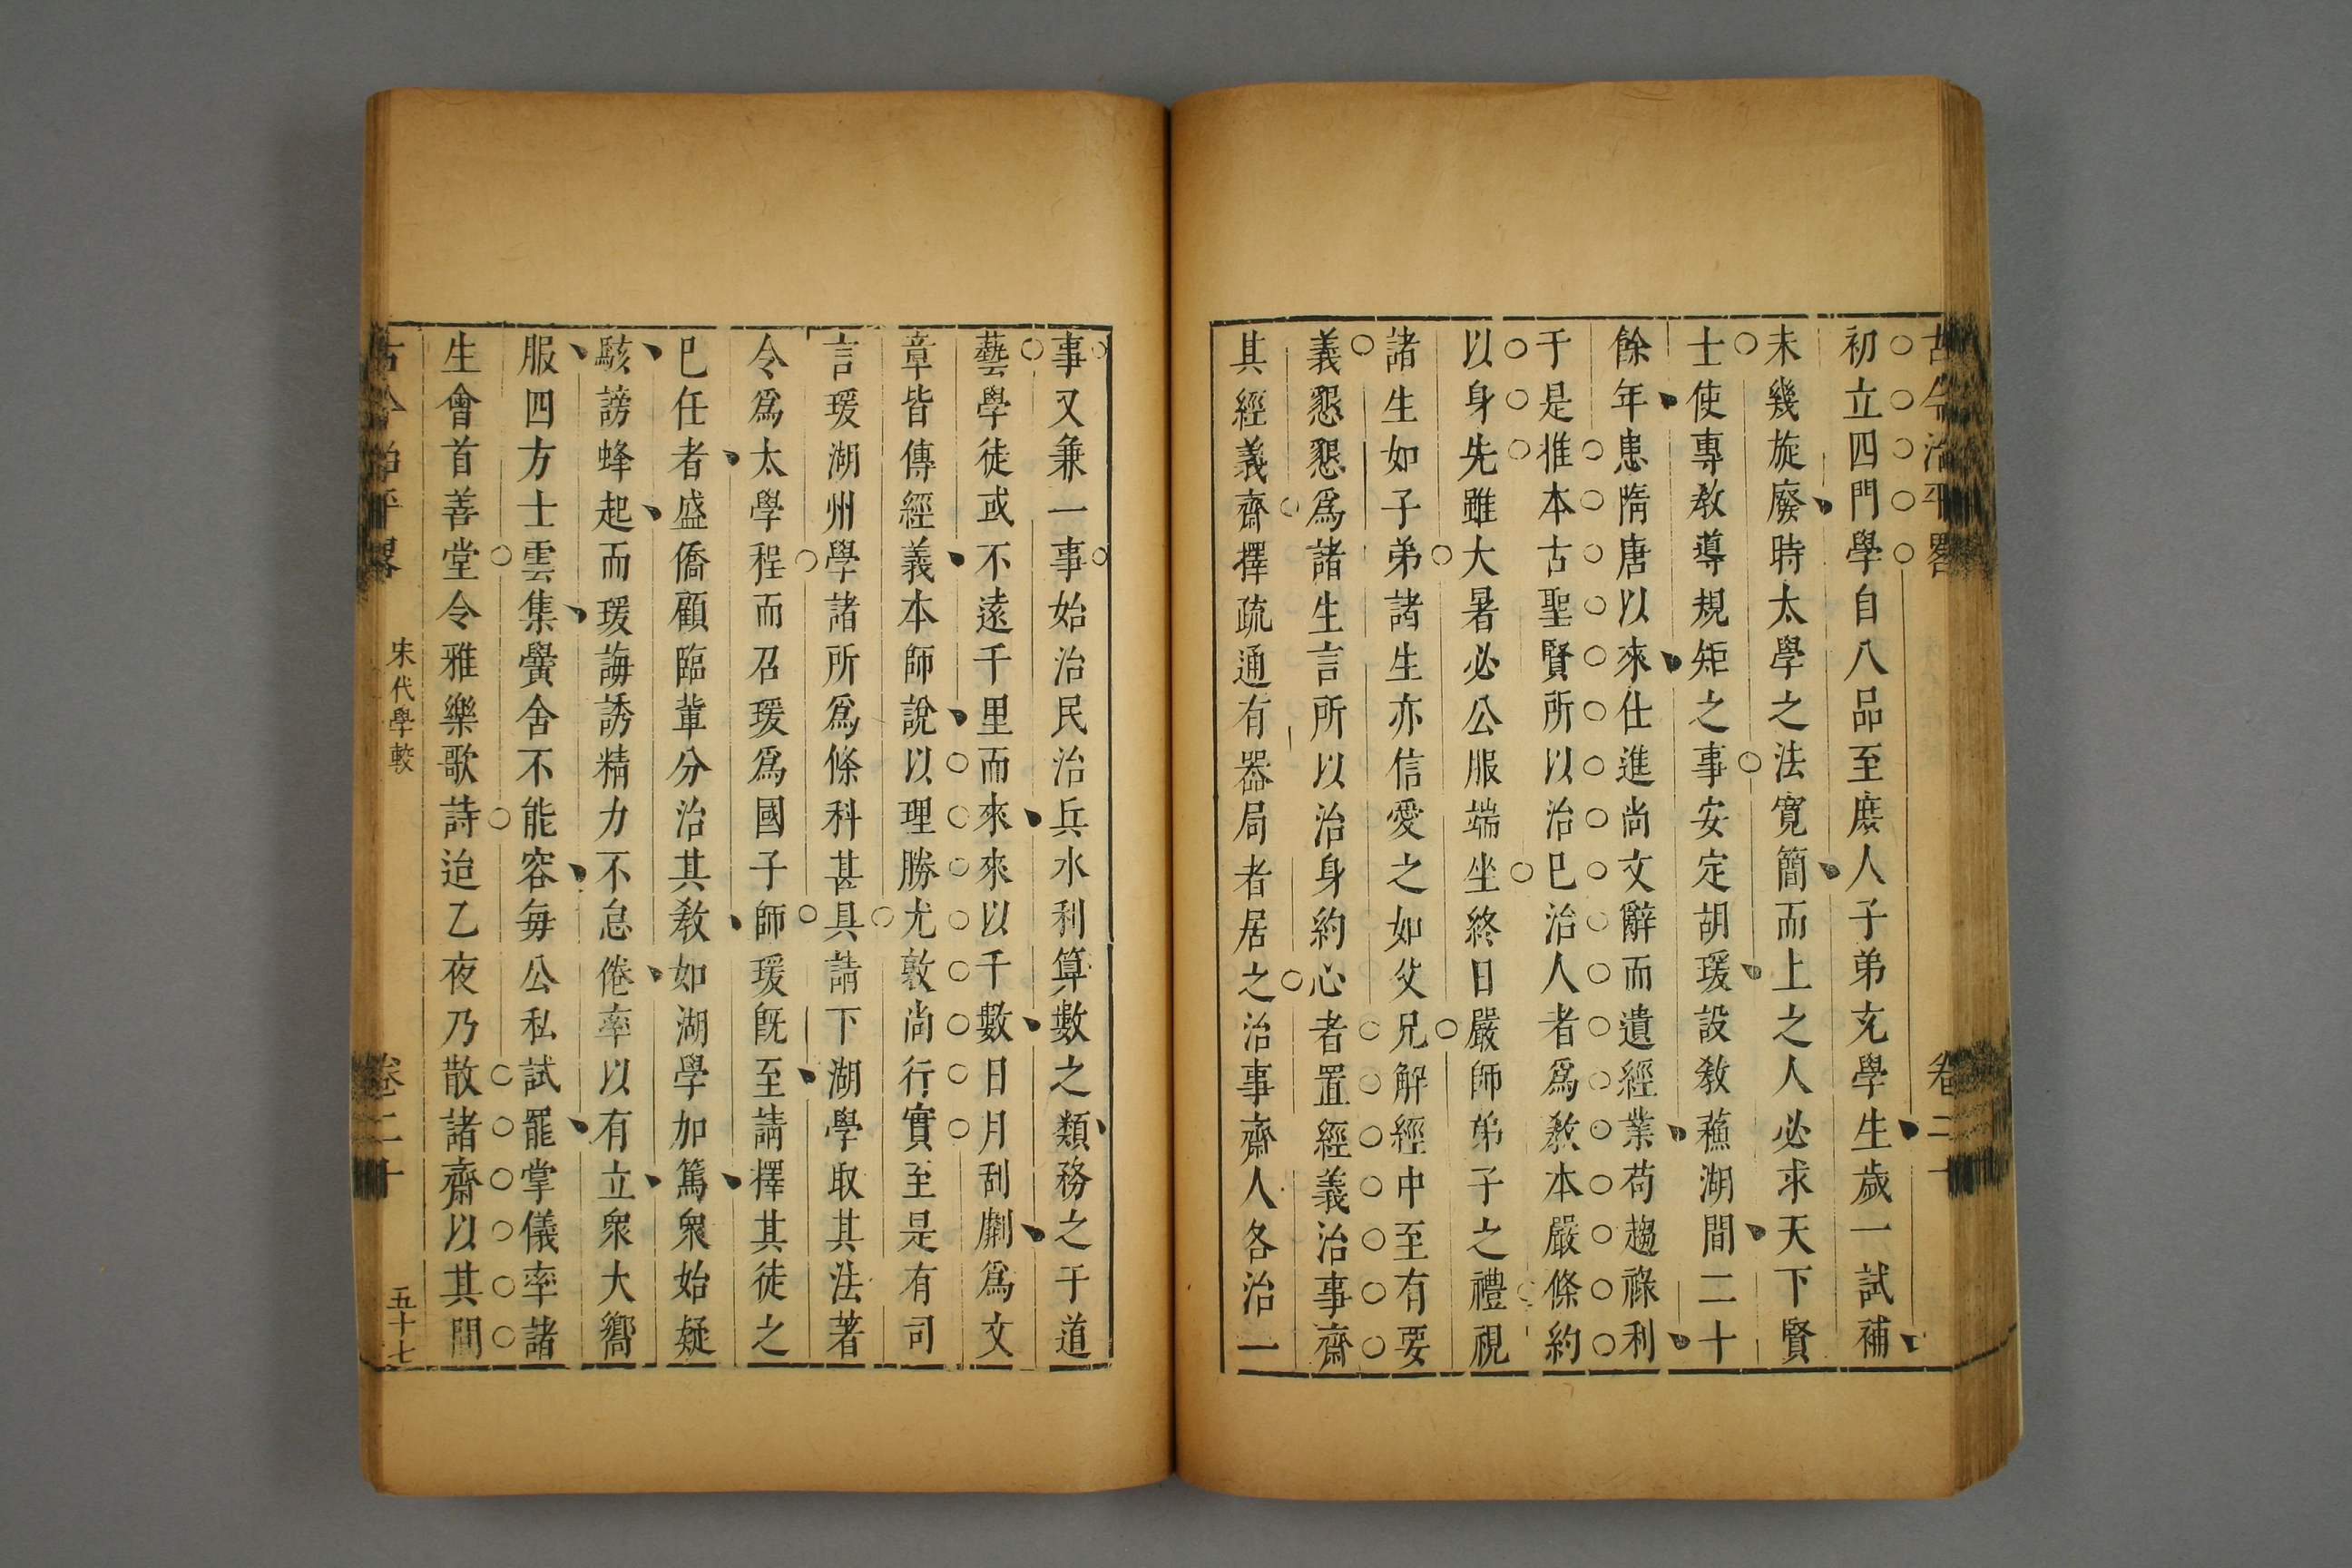 古今治平畧 卷二十
初立四門學自八品至庶人子弟充學生歲一試補
未幾旋廢時太學之法寬簡而上之人必求天下賢
士使專教導規矩之事安定胡瑗設教蘓湖間二十
餘年患隋唐以來仕進尚文辭而遺經業苟趨祿利
于是惟本古聖賢所以治已治人者爲教本嚴條約
以身先雖大暑必公服端坐終日嚴師弟子之禮視
諸生如子弟諸生亦信愛之如父兄解經中至有要
義懇懇爲諸生言所以治身約心者置經義治事齋
其經義齋擇疏通有器局者居之治事齋人各治一
事又兼一事始治民治兵水利算數之類務之于道
藝學徒或不遠千里而來來以千數日月刮劘爲文
章皆傳經義本師說以理勝尤敦尚行實至是有司
言瑗湖州學諸所爲條科甚具請下湖學取其法著
令爲太學程而召瑗爲國子師瑗旣至請擇其徒之
已任者盛僑顧臨軰分治其教如湖學加篤衆始疑
駭謗蜂起而瑗誨誘精力不怠倦率以有立衆大嚮
服四方士雲集黌舍不能容每公私試罷掌儀率諸
生會首善堂令雅樂歌詩迨乙夜乃散諸齋以其間
古今治平畧 宋代學較 卷二十 五十七